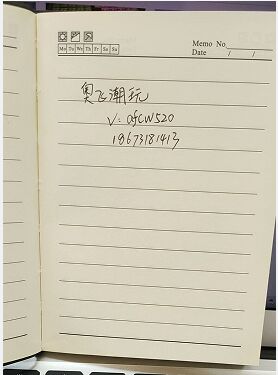 Memo No
Mo Tu We Th Fr Sa Su
Date / /
奥飞潮玩
V: afcw520
19673181413